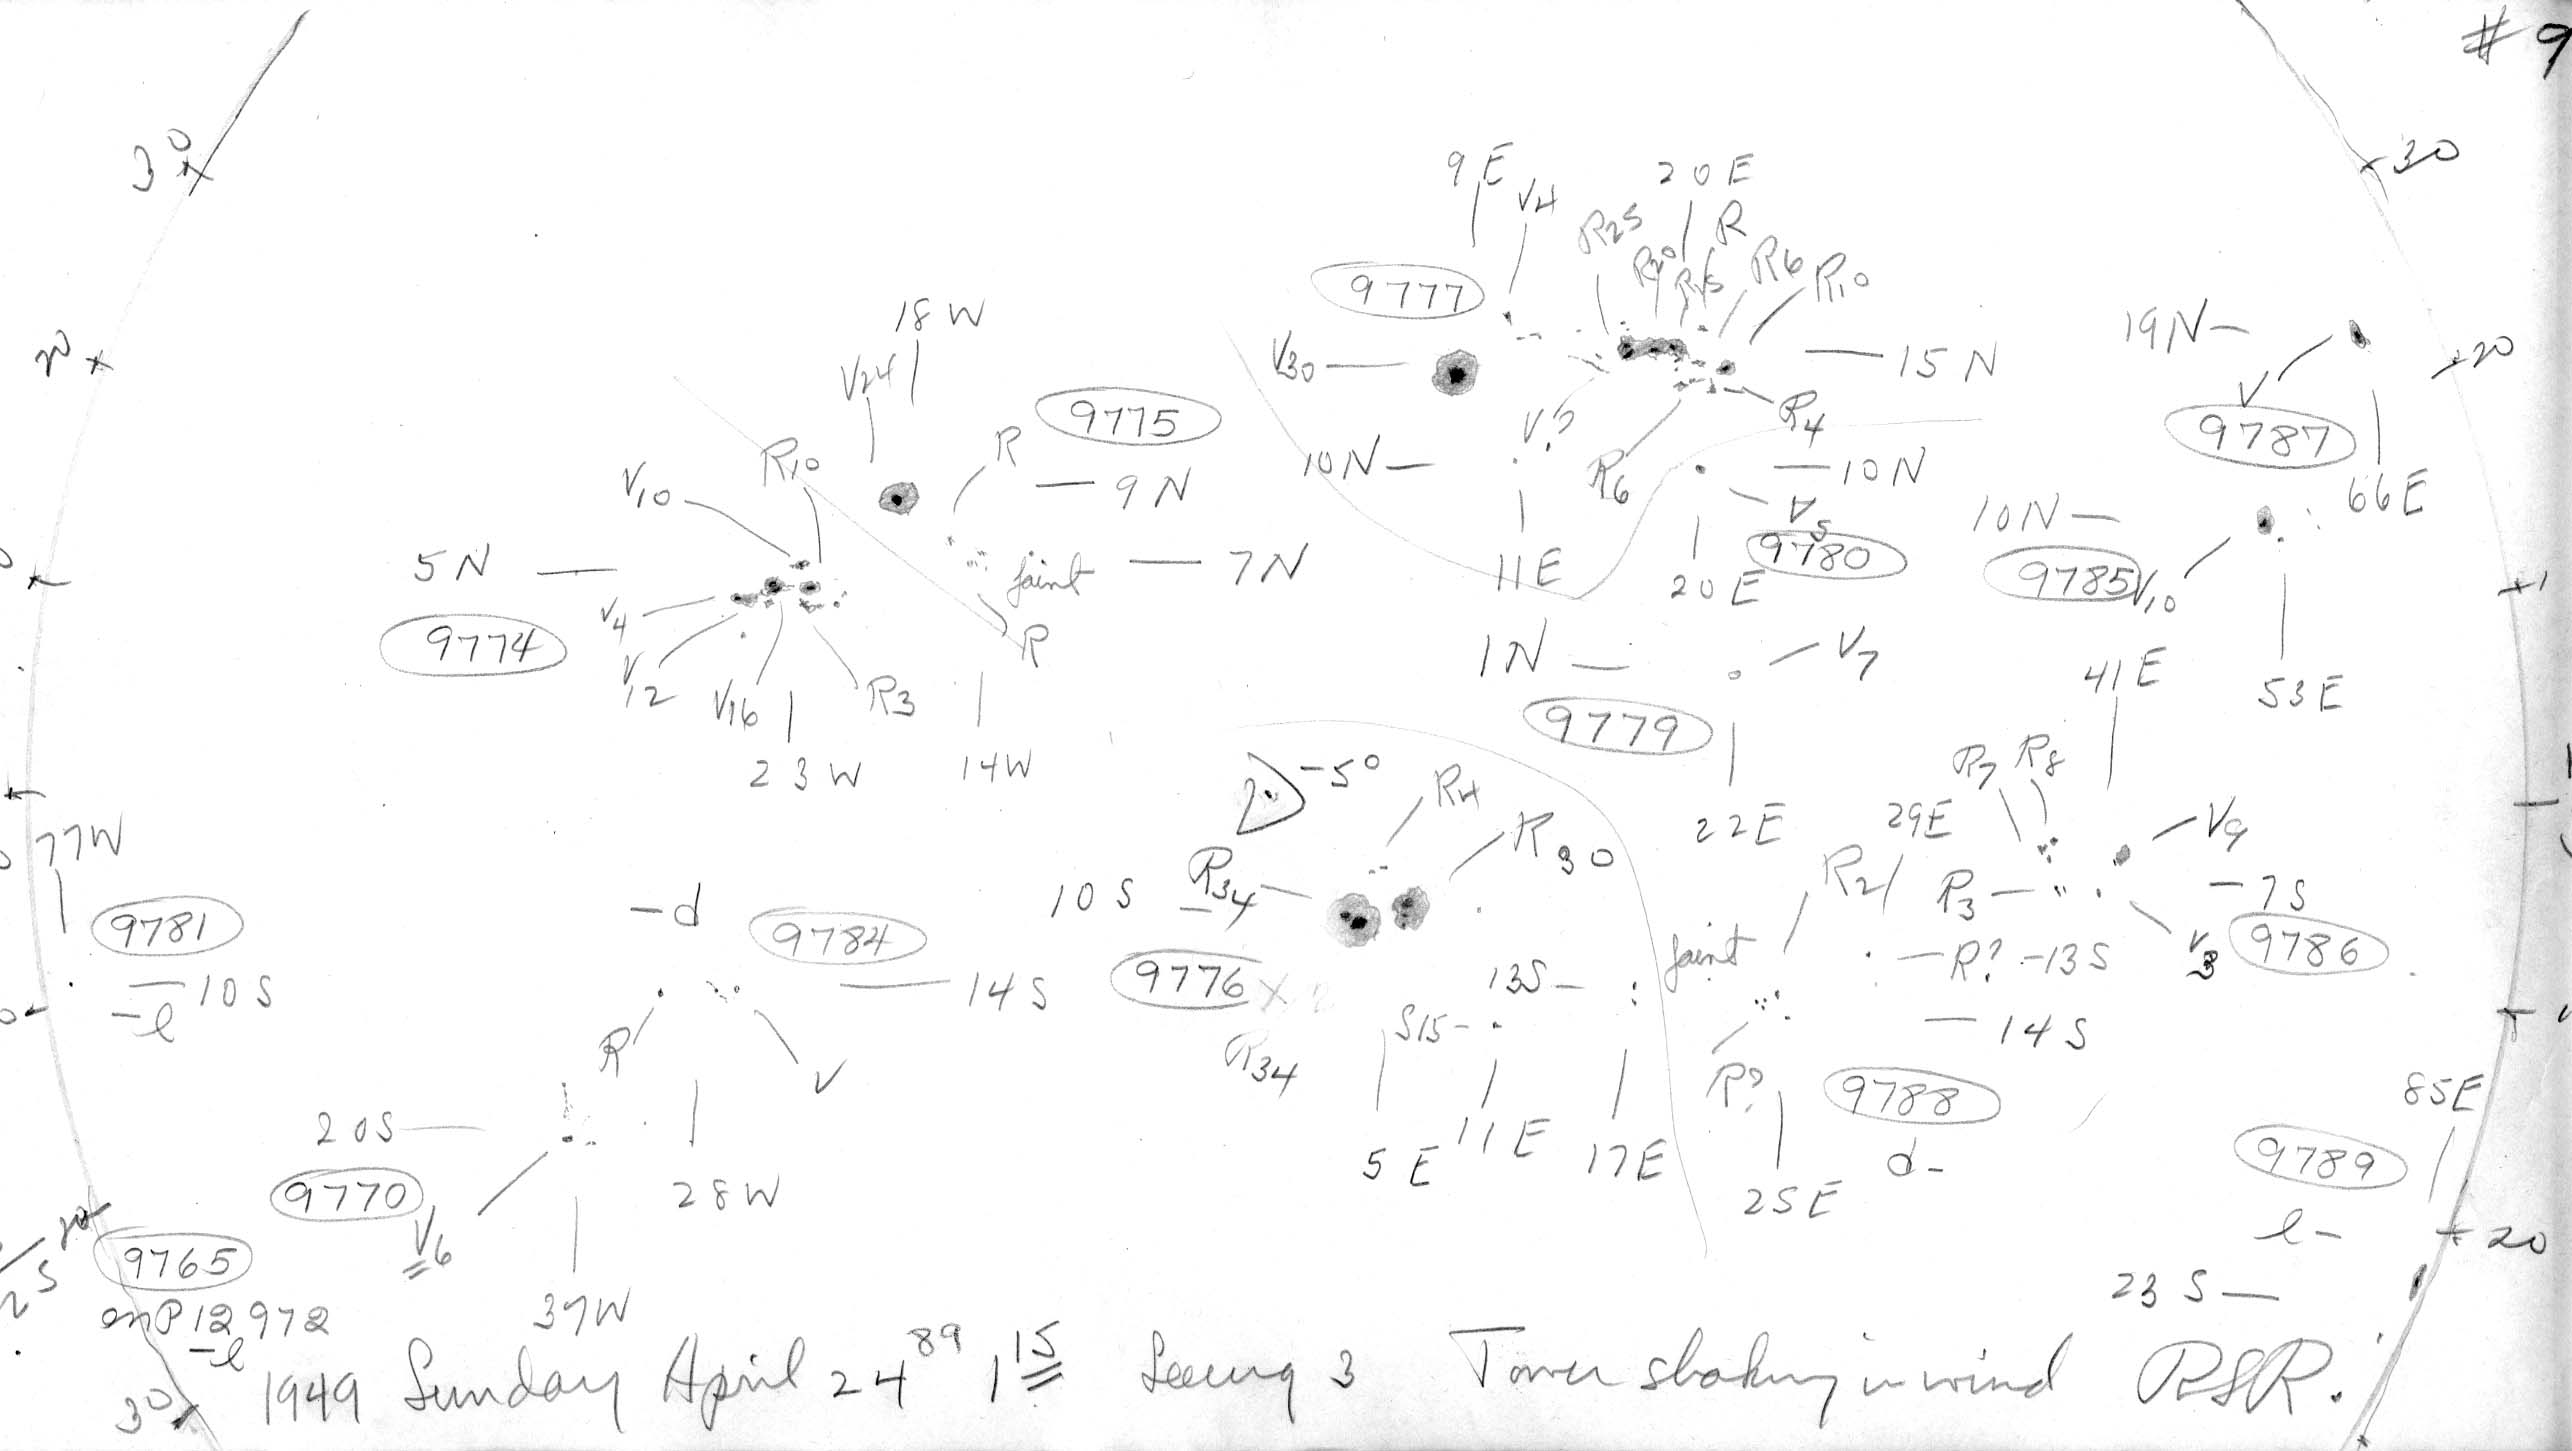 # 9
30
30
9E
V4
20E
R25
R
R20
R15
R6
R10
9777
18W
19N
20
V30
15N
20
V24
V
9775
R4
9787
R10
R
V?
10N
R6
10N
9N
66E
V10
V5
10N
9780
5N
faint
7N
11E
20E
9785
V10
V4
9774
R
1N
V7
V12
V16
R3
41E
53E
9779
23W
14W
-5°
R7
R8
R4
77W
22E
29E
V9
R30
R34
R2
9781
-d
9784
10S
R3
7S
faint
9786
V3
R? -13S
10S
14S
9776
13S
-l
S15
14S
R
R34
V
R?
9788
85E
20S
11E
17E
5E
9789
9770
28W
d-
25E
20
V6
l-
20
9765
25
37W
23S
on P 12972
-l
30
1949 Sunday April 24 89 1 15 Seeing 3 Tower shaking in wind RSR.